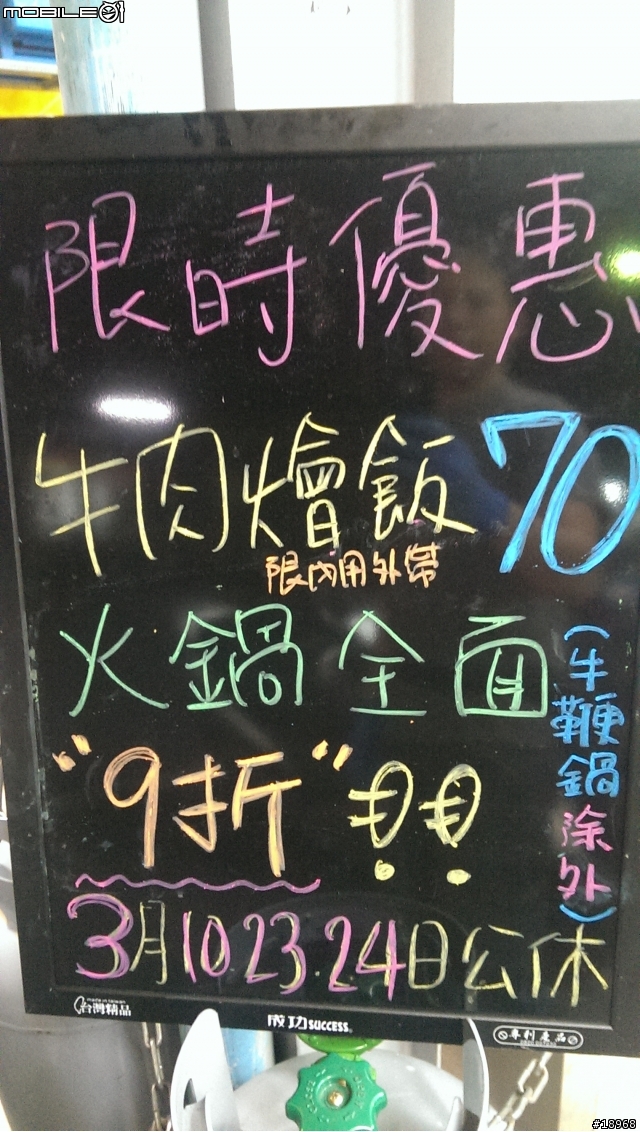 MOBILE01
限時優惠
牛肉燴飯70
限內用外帶
火鍋全面
(牛鞭鍋除外)
"9折"!!
3月10 23.24日公休
made in taiwan
台灣精品
成功 SUCCESS
專利產品
#18968